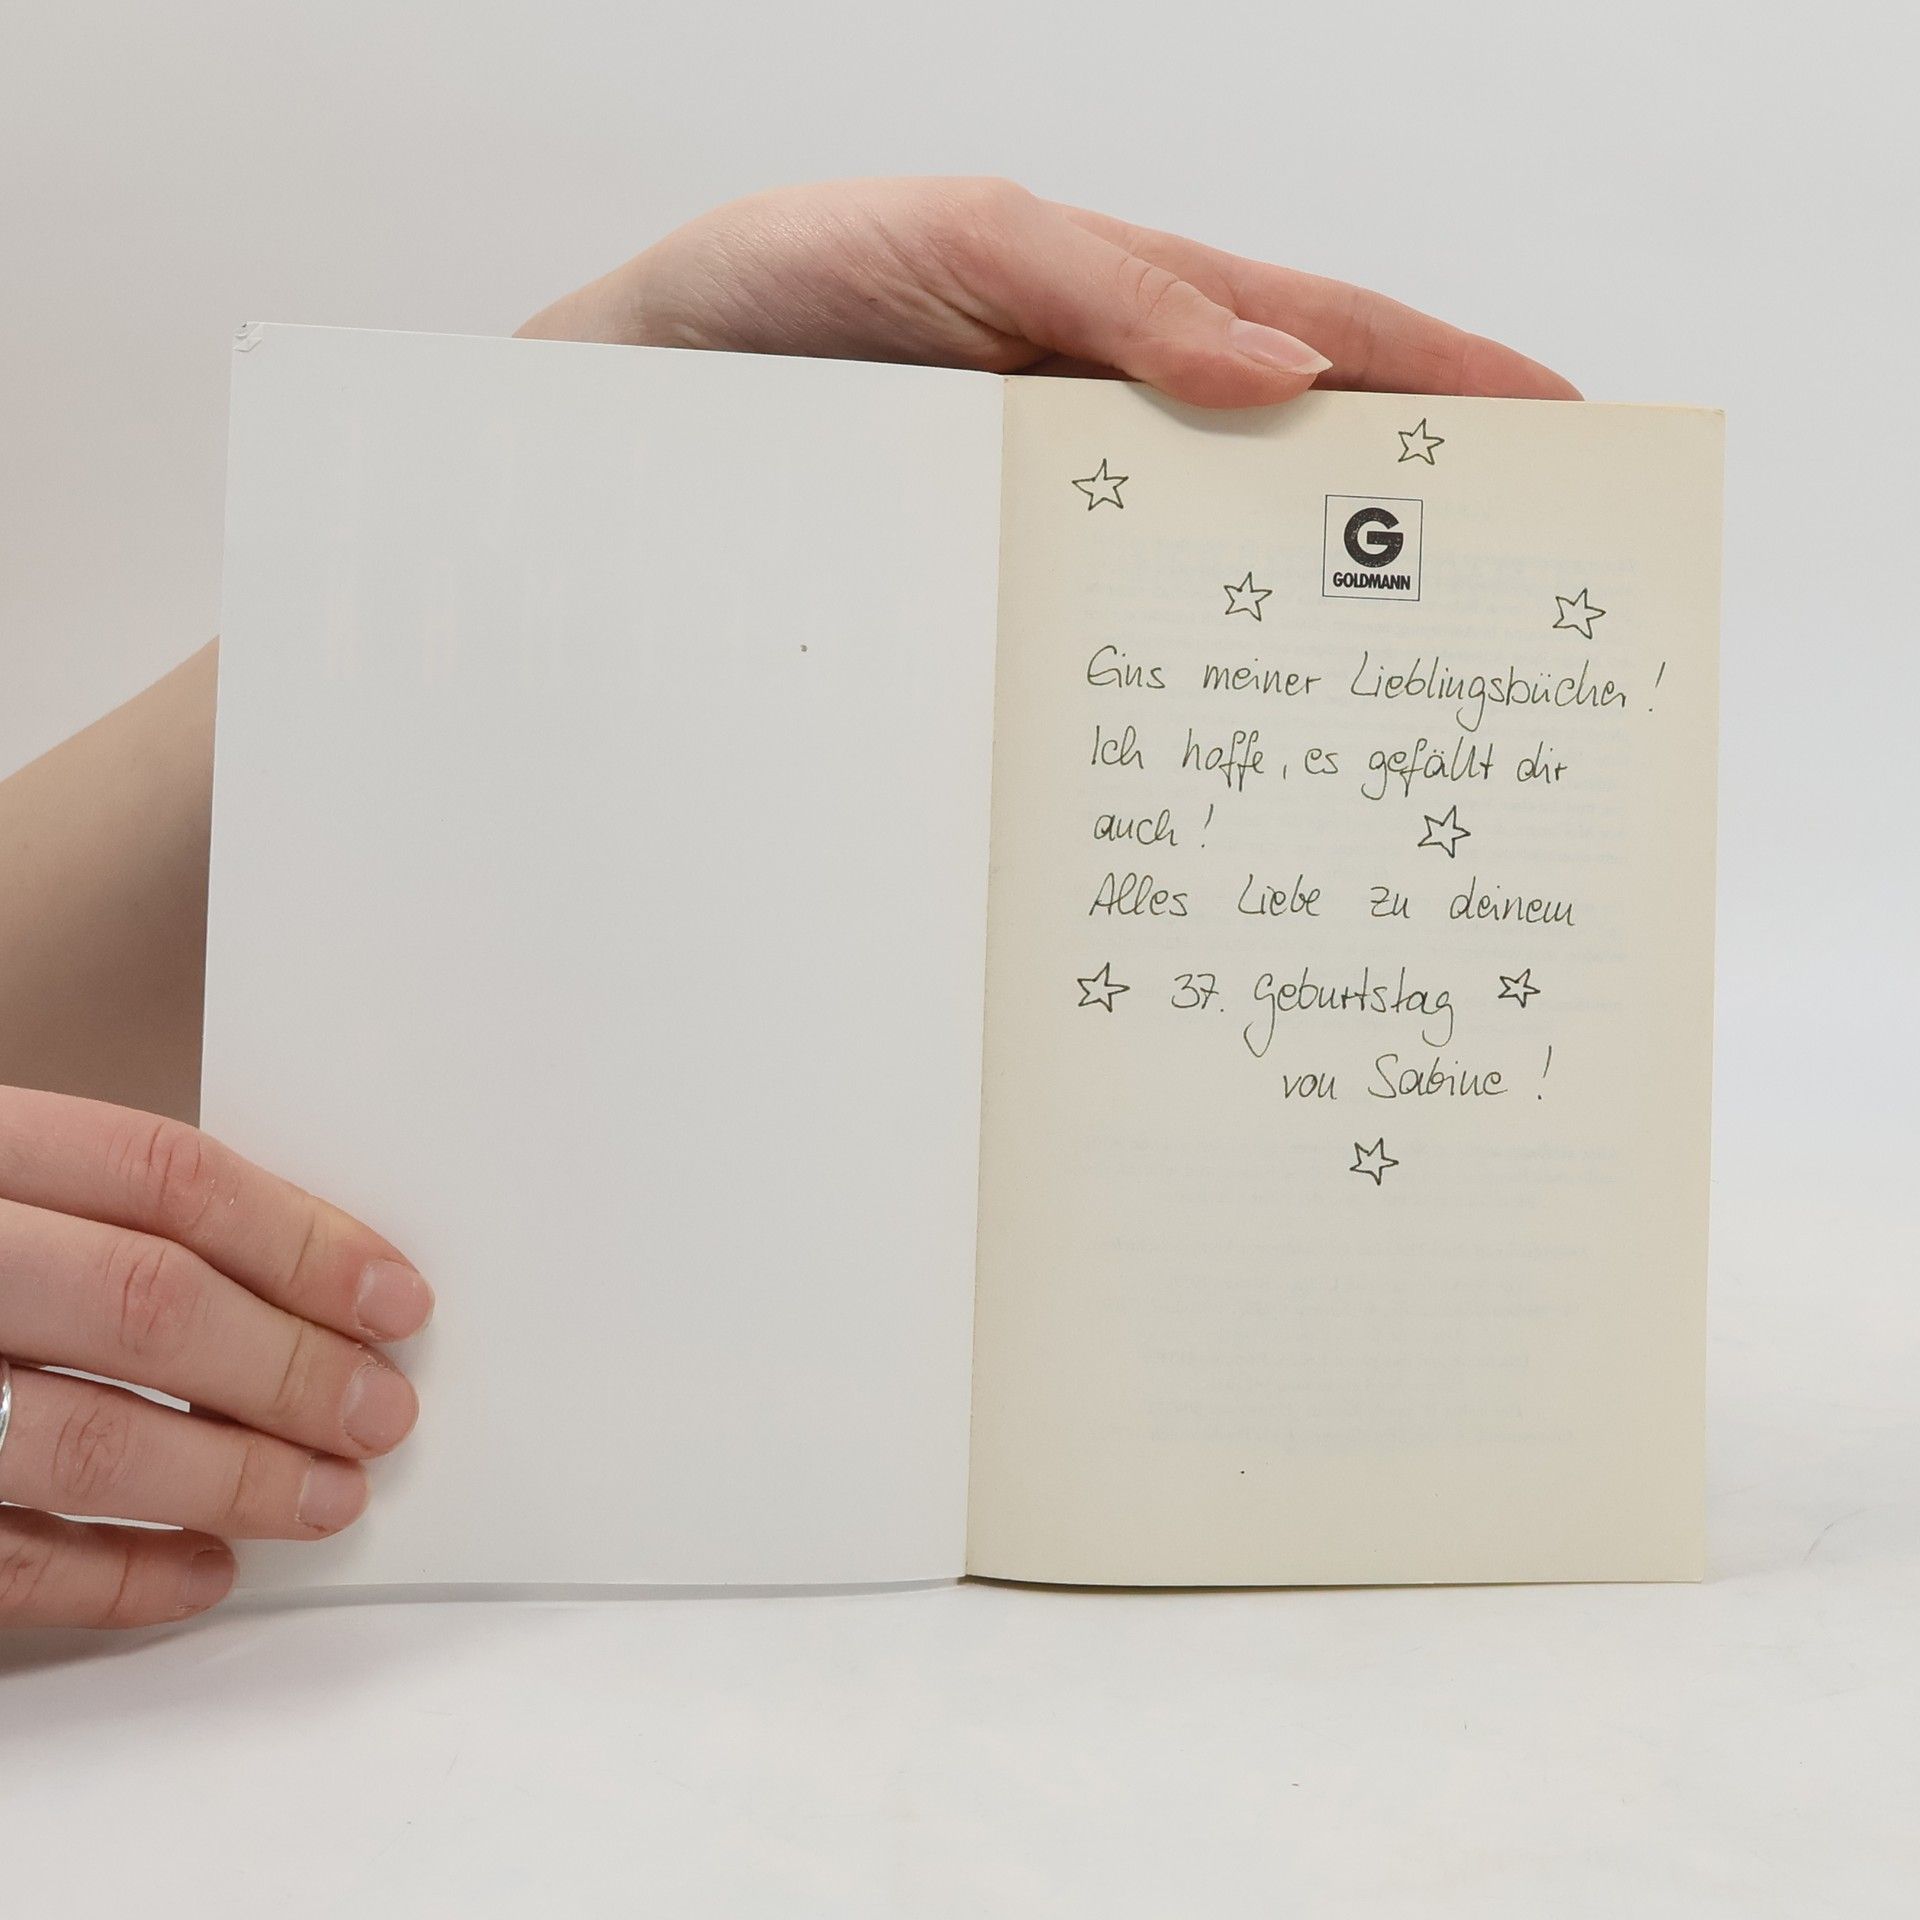 G
GOLDMANN
Eins meiner Lieblingsbücher!
Ich hoffe, es gefällt dir
auch!
Alles Liebe zu deinem
37. Geburtstag
von Sabine!